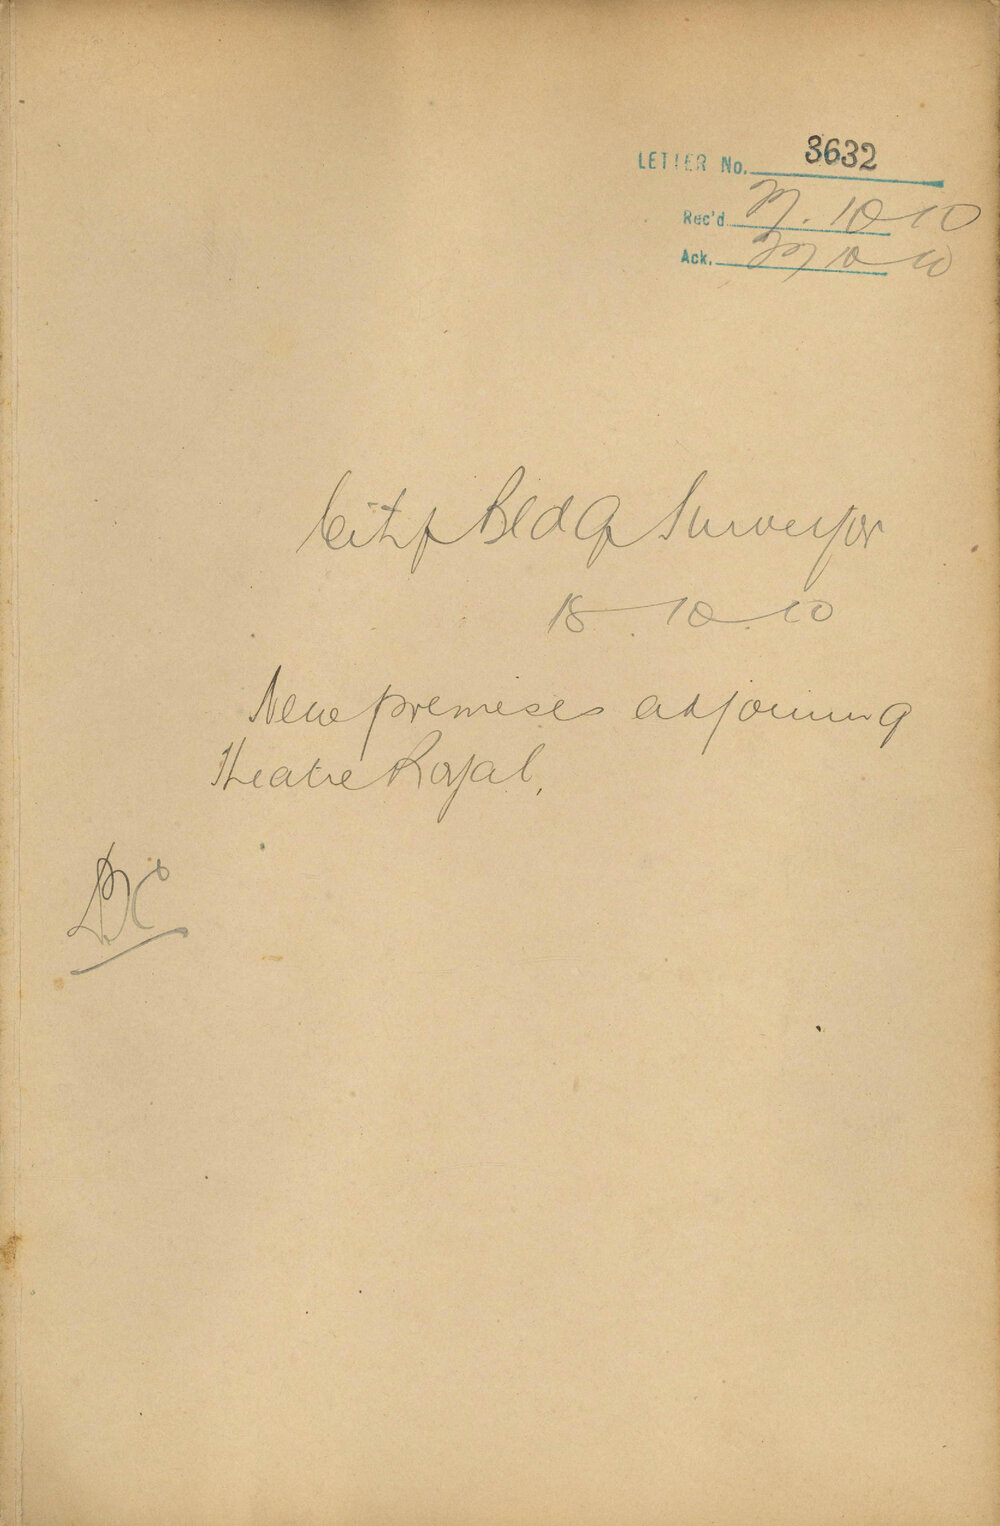 LETTER No. 3632
Rec'd 10 10
Ack. 10 10
City Bldg Surveyor
18 . 10 . 10
New premises adjoining
Theatre Royal.